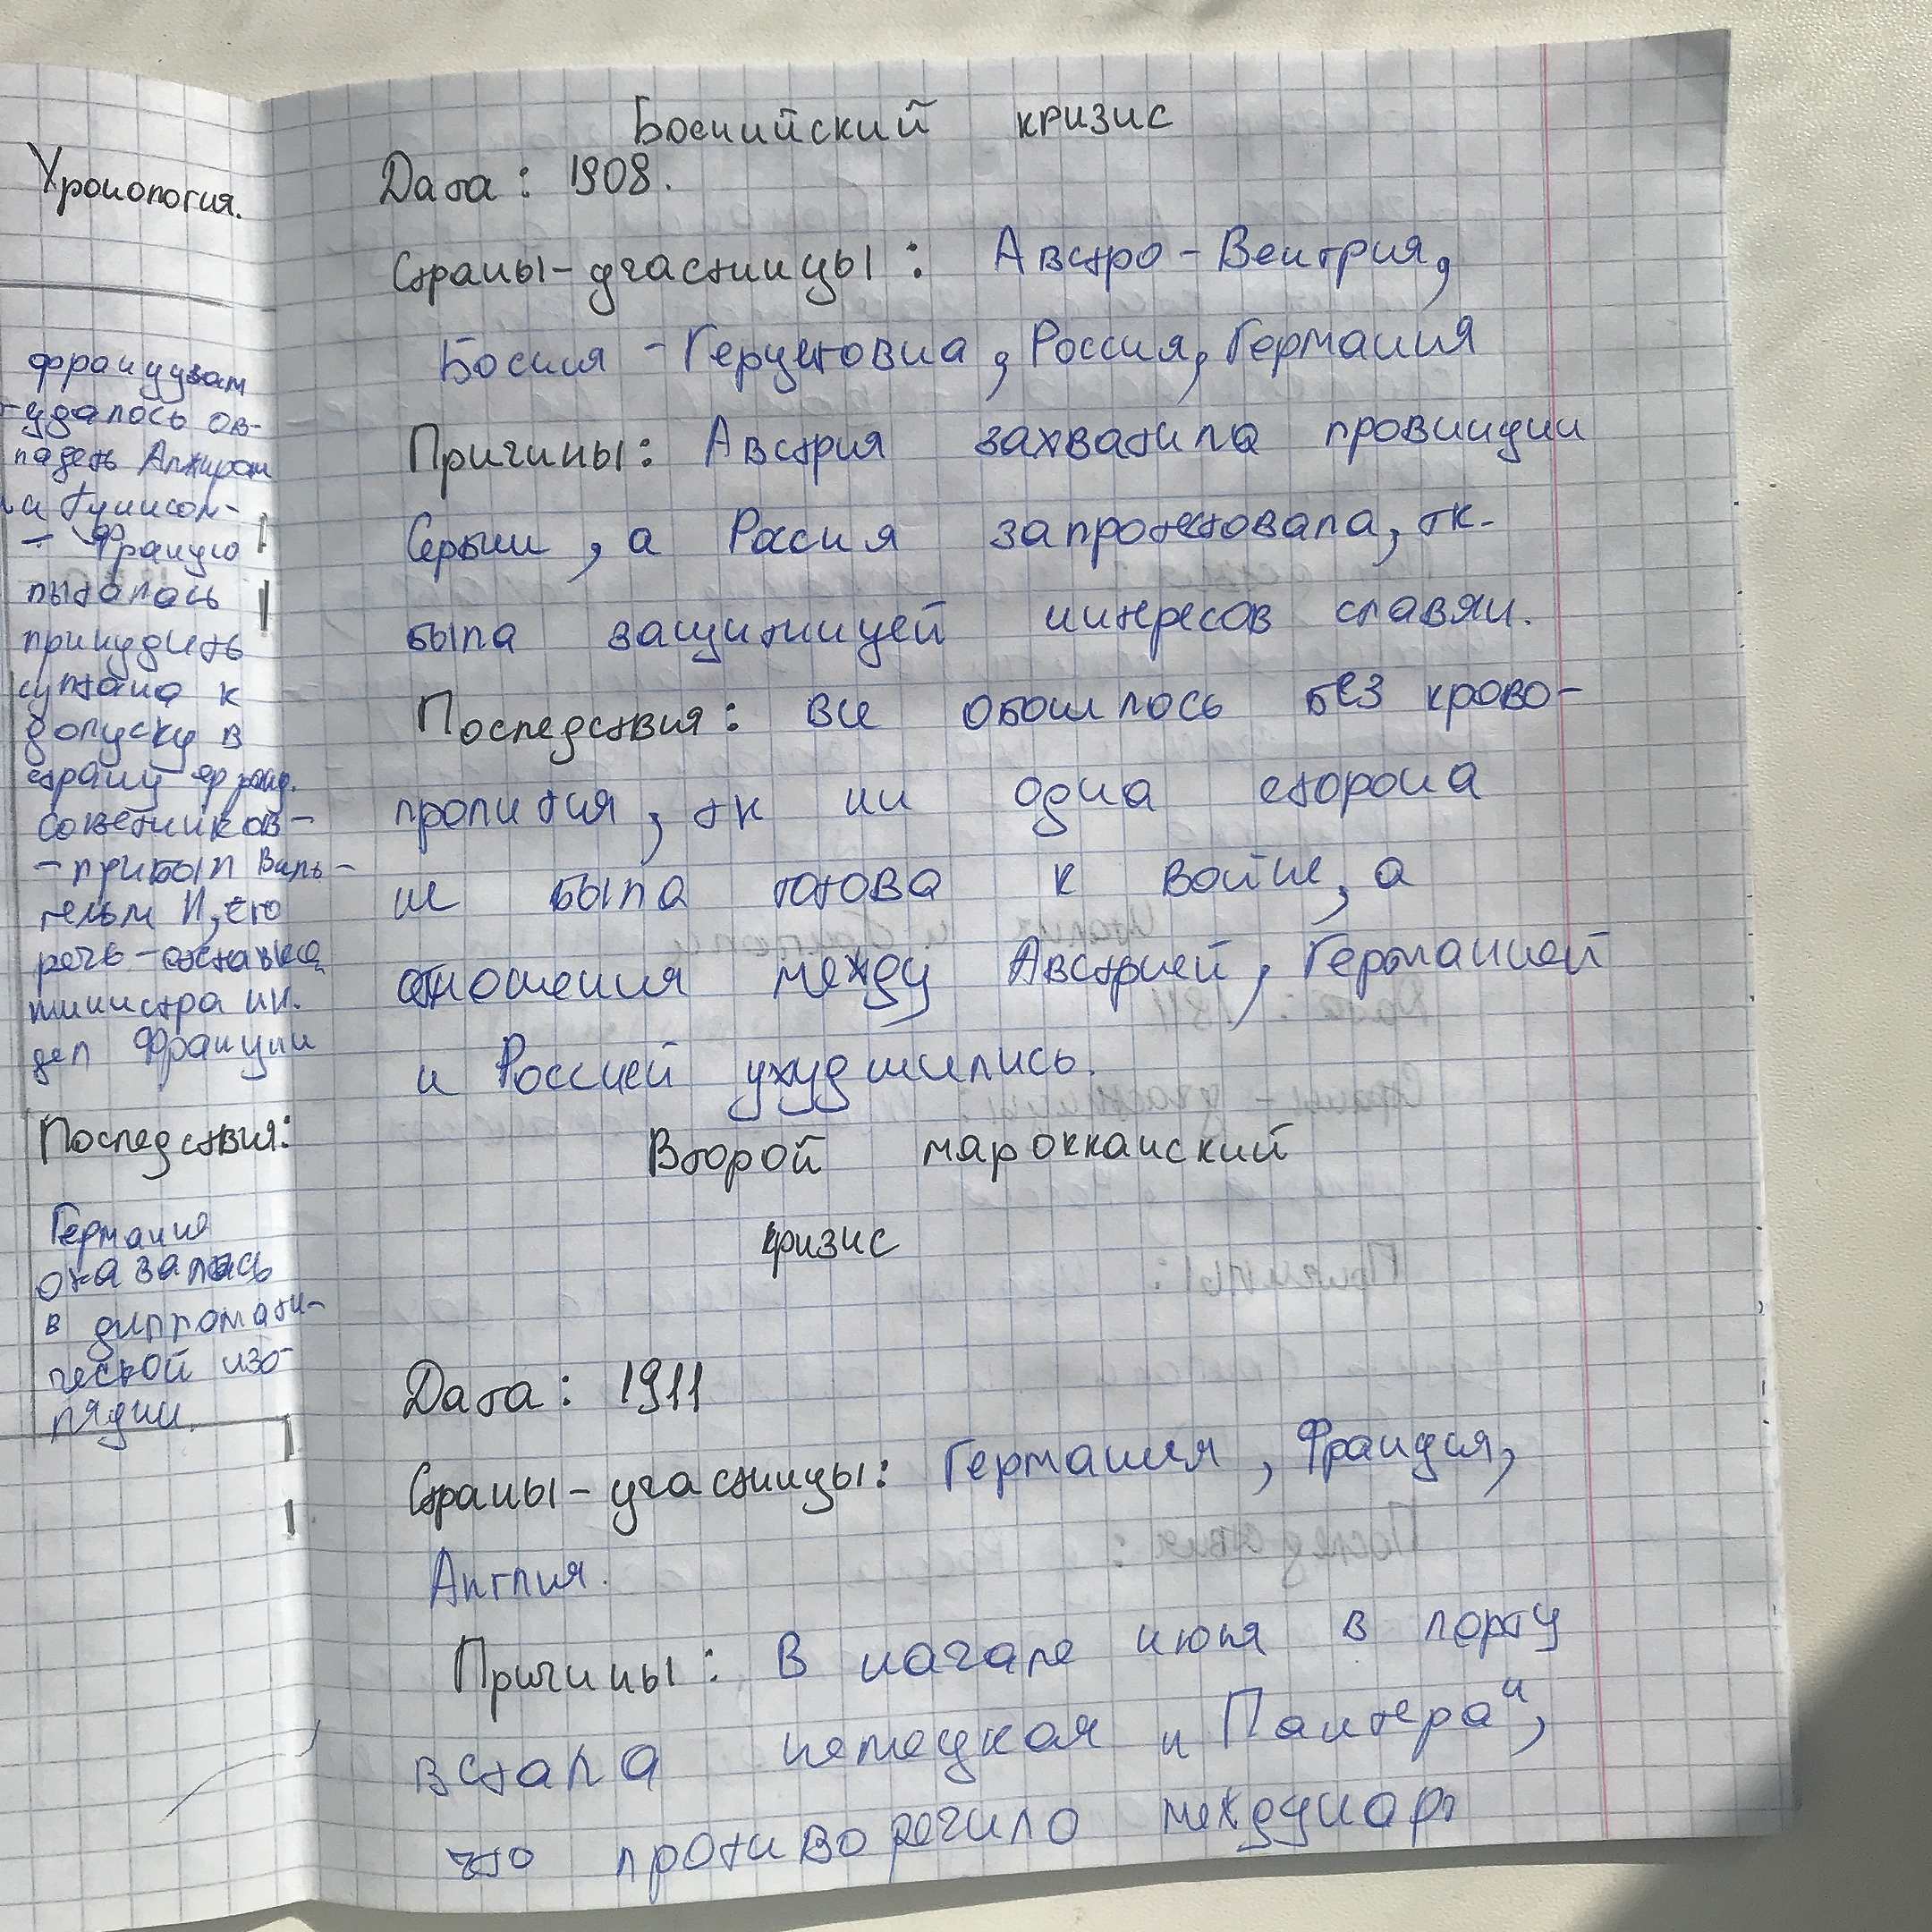 Хронология.
французам
удалось ов-
ладеть Алжиром
и Тунисом-
- Францию
пыталась
принудить
султана к
допуску в
страну франц.
советников-
- прибыл Виль-
гельм II, его
речь - отставка
министра ин.
дел Франции
Последствия:
Германия
оказалась
в дипломати-
ческой изо-
ляции.
Боснийский кризис
Дата: 1908.
Страны-участницы: Австро-Венгрия,
Босния-Герцеговина, Россия, Германия
Причины: Австрия захватила провинции
Сербии, а Россия запротестовала, тк.
была защитницей интересов славян.
Последствия: все обошлось без крово-
пролития, тк ни одна сторона
не была готова к войне, а
отношения между Австрией, Германией
и Россией ухудшились.
Второй марокканский
кризис
Дата: 1911
Страны-участницы: Германия, Франция,
Англия.
Причины: В начале июля в порту
встала немецкая "Пантера",
что противоречило междунар